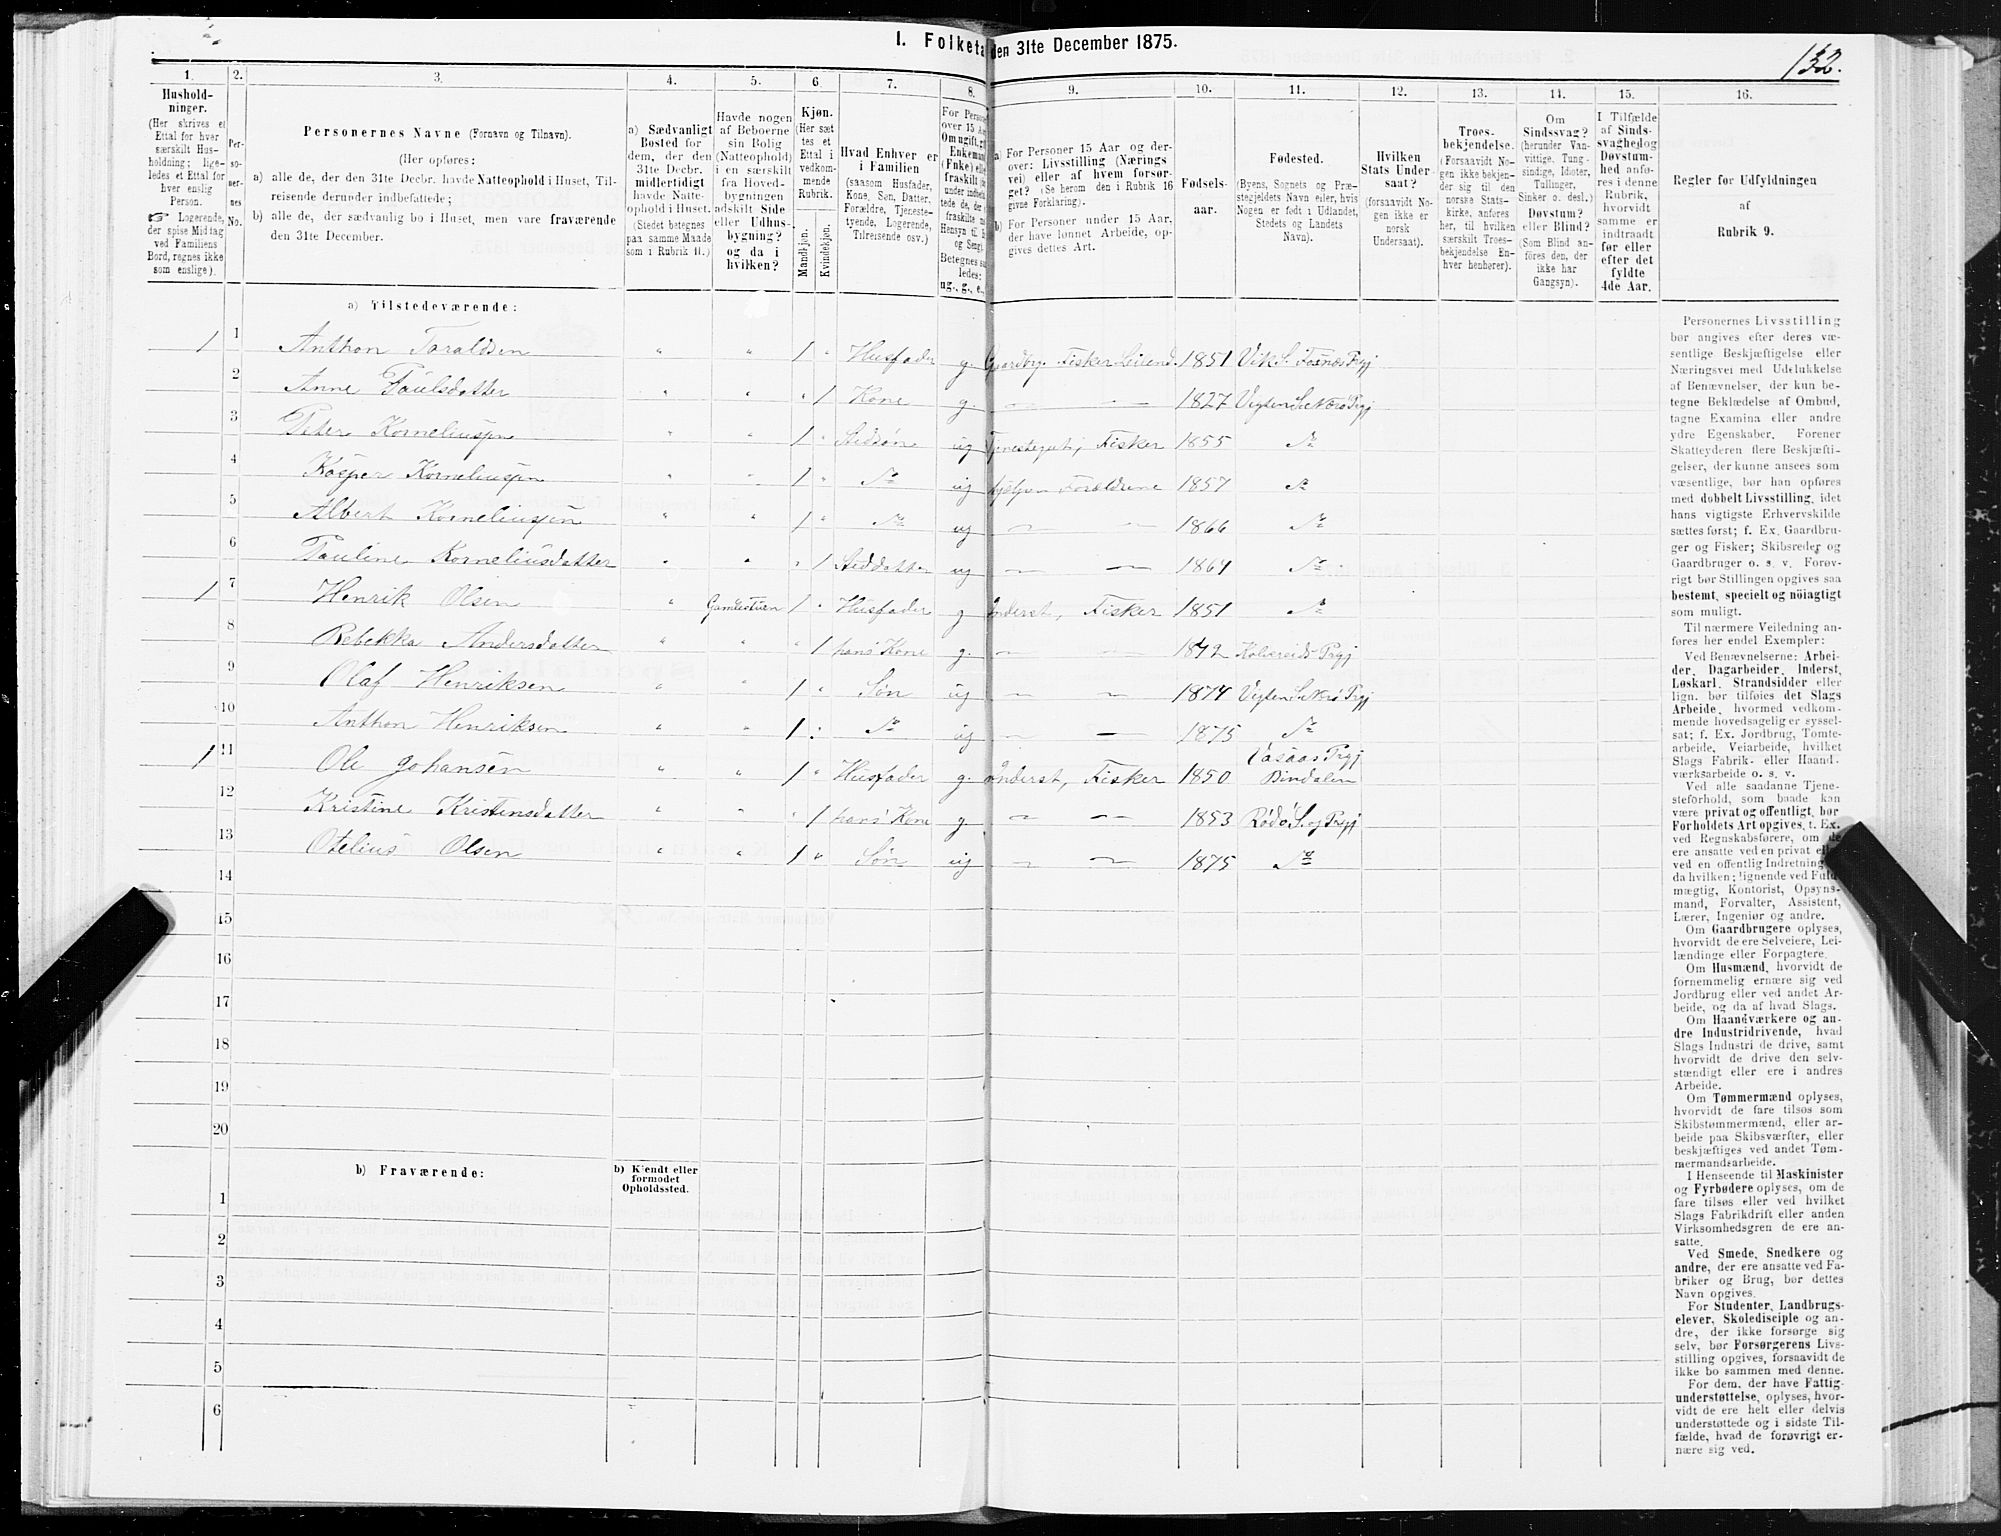 I. Folketa
den 31te December 1875.
132.
1.
2.
3.
4.
5.
6.
7.
8.
9.
10.
11.
12.
13.
14.
15.
16.
Hushold-
ninger.
(Her skrives et
Ettal for hver
særskilt Hus-
holdning; lige-
ledes et Ettal for
hver enslig
Person.
☞ Logerende,
der spise Middag
ved Familiens
Bord, regnes ikke
som enslige).
Per-
so-
ner-
nes
No.
Personernes Navne (Fornavn og Tilnavn).
(Her opføres:
a) alle de, der den 31te Decbr. havde Natteophold i Huset, Til-
reisende derunder indbefattede;
b) alle de, der sædvanlig bo i Huset, men vare fraværende
den 31te December.
a) Sædvanligt
Bosted for
dem, der den
31te Decbr.
midlertidigt
havde Natte-
ophold i Huset.
(Stedet betegnes
paa samme Maade
som i Rubrik 11.)
Havde nogen
af Beboerne
sin Bolig
(Natteophold)
i en særskilt
fra Hoved-
bygningen
adskilt Side
eller Udhus-
bygning?
og da i
hvilken?
Kjøn.
(Her sæt
tes et
Ettal i
vedkom-
mende
Rubrik.
Mandkjøn.
Kvindekjøn.
Hvad Enhver er
i Familien
(saasom Husfader,
Kone, Søn, Datter,
Forældre, Tjeneste-
tyende, Logerende,
Tilreisende osv.)
For Persone
over 15 Aar
Om ugift, gi
Enkemand
(Enke) elle
fraskilt (
under indbefa
tede de, d
fraskilte m
Hensyn til B
og Seng).
Betegnes sa
ledes:
ug., g., e.,
a) For Personer 15 Aar og der-
over: Livsstilling (Nærings
vei) eller af hvem forsør-
get? (Se herom den i Rubrik 16
givne Forklaring).
b) For Personer under 15 Aar,
der have lønnet Arbeide, op-
gives dettes Art.
Fødsels-
aar.
Fødested.
(Byens, Sognets og Præ-
stegjeldets Navn eller, hvis
Nogen er født i Udlandet,
Stedets og Landets
Navn).
Hvilken
Stats Under-
saat?
(forsaavidt No-
gen ikke er
norsk
Undersaat).
Troes-
bekjendelse.
(Forsaavidt No-
gen ikke bekjen-
der sig til den
norske Stats-
kirke, anføres
her, til hvilken
særskilt Troes-
bekjendelse En-
hver henhører).
Om
Sindssvag?
(herunder Van-
vittige, Tung-
sindige, Idioter,
Tullinger,
Sinker o. desl.)
Døvstum?
eller Blind?
(Som Blind an-
føres den, der
ikke har
Gangsyn).
I Tilfælde
af Sinds-
svaghed og
Døvstum-
hed anfø-
res i denne
Rubrik,
hvorvidt
samme er
indtraadt
før eller
efter det
fyldte
4de Aar.
Regler før Udfyldningen
af
Rubrik 9.
a) Tilstedeværende:
1 1 Anthon Taraldsen " " 1 " Husfader g. Gaardbr. Fisker Leilend. 1851 Vik S. Fosnæs Prgj
2 Anne Paulsdatter " " " 1 Kone g. — — 1827 Vegten S. Nærø Prgj
3 Peter Korneliussen " " 1 " Stedsøn ug Tjenestegut, Fisker 1855 Do
4 Kasper Korneliussen " " 1 " Do ug hjelper Forældrene 1857 Do
5 Albert Korneliussen " " 1 " Do ug — — 1866 Do
6 Pauline Korneliusdatter " " " 1 Steddatter ug — — 1864 Do
1 7 Henrik Olsen " Gamlestuen 1 " Husfader g Inderst, Fisker 1851 Do
8 Rebekka Andersdatter " " " 1 hans Kone g. — — 1842 Kolvereids Prgj
9 Olaf Henriksen " " 1 " Søn ug — — 1874 Vegten S. Nærø Prgj
10 Anthon Henriksen " " 1 " Do ug — — 1875 Do
1 11 Ole Johansen " " 1 " Husfader g. Inderst, Fisker 1850 Vasaas Prgj
Bindalen
12 Kristine Kristensdatter " " " 1 hans Kone g. — — 1853 Rødø S. og Prgj
13 Otelius Olsen " " 1 " Søn ug — — 1875 Do
14
15
16
17
18
19
20
b) Fraværende:
b) Kjendt eller
formodet
Opholdssted.
1
2
3
4
5
6
Personernes Livsstilling
bør angives efter deres væ-
sentlige Beskjæftigelse eller
Næringsvei med Udelukkelse
af Benævnelser, der kun be-
tegne Beklædelse af Ombud,
tagne Examina eller andre
ydre Egenskaber. Forener
Skatteyderen flere Beskjæfti-
gelser, der kunne ansees som
væsentlige, bør han opføres
med dobbelt Livsstilling, idet
hans vigtigste Erhvervskilde
sættes først; f. Ex. Gaardbru-
ger og Fisker; Skibsreder og
Gaardbruger o. s. v. Forøv-
rigt bør Stillingen opgives saa
bestemt, specielt og nöiagtigt
som muligt.
Til nærmere Veiledning an-
føres her endel Exempler:
Ved Benævnelserne: Arbei-
der, Dagarbeider, Inderst,
Løskarl, Strandsidder eller
lign. bør tilføies det Slags
Arbeide, hvormed vedkom-
mende hovedsagelig er syssel-
sat; f. Ex. Jordbrug, Tomte-
arbeide, Veiarbeide, hvilket
Slags Fabrik- eller Haand
værksarbeide o. s. v.
Ved alle saadanne Tjene-
steforhold, som baade kan
være privat og offentligt, bør
Forholdets Art opgives, t. Ex.
ved Regnskabsførere, om de
ere ansatte ved en privat elle
ved en offentlig Indretning
da hvilken; lignende ved Fuld
mægtig, Kontorist, Opsyns-
mand, Forvalter, Assistent,
Lærer, Ingeniør og andre.
Om Gaardbrugere oplyses,
hvorvidt de ere Selveiere, Lei-
lændinge eller Forpagtere.
Om Husmænd, hvorvidt de
fornemmelig ernære sig ved
Jordbrug eller ved andet Ar-
beide, og da af hvad Slags.
Om Haandværkere og an-
dre Industridrivende, hvad
Slags Industri de drive, samt
hvorvidt de drive den selv-
stændigt eller ere i andres
Arbeide.
Om Tømmermænd oplyses,
hvorvidt de fare tilsøs som
Skibstømmermænd, eller ar-
beide paa Skibsværfter, eller
beskjæftiges ved andet Tøm-
mermandsarbeide.
I Henseende til Maskinister
og Fyrbødere oplyses, om de
fare tilsøs eller ved hvilket
Slags Fabrikdrift eller anden
Virksomhedsgren de ere an-
satte.
Ved Smede, Snedkere og
andre, der ere ansatte ved Fa-
briker og Brug, bør dettes
Navn opgives.
For Studenter, Landbrugs-
elever, Skoledisciple og an-
dre, der ikke forsørge sig
selv, bør Forsørgerens Livs-
stilling opgives, forsaavidt de
ikke bo sammen med denne.
For dem, der have Fattig-
understøttelse, oplyses, hvor-
vidt de ere helt eller delvis
understøttede og i sidste Til-
fælde, hvad de forøvrigt er-
nære sig ved.